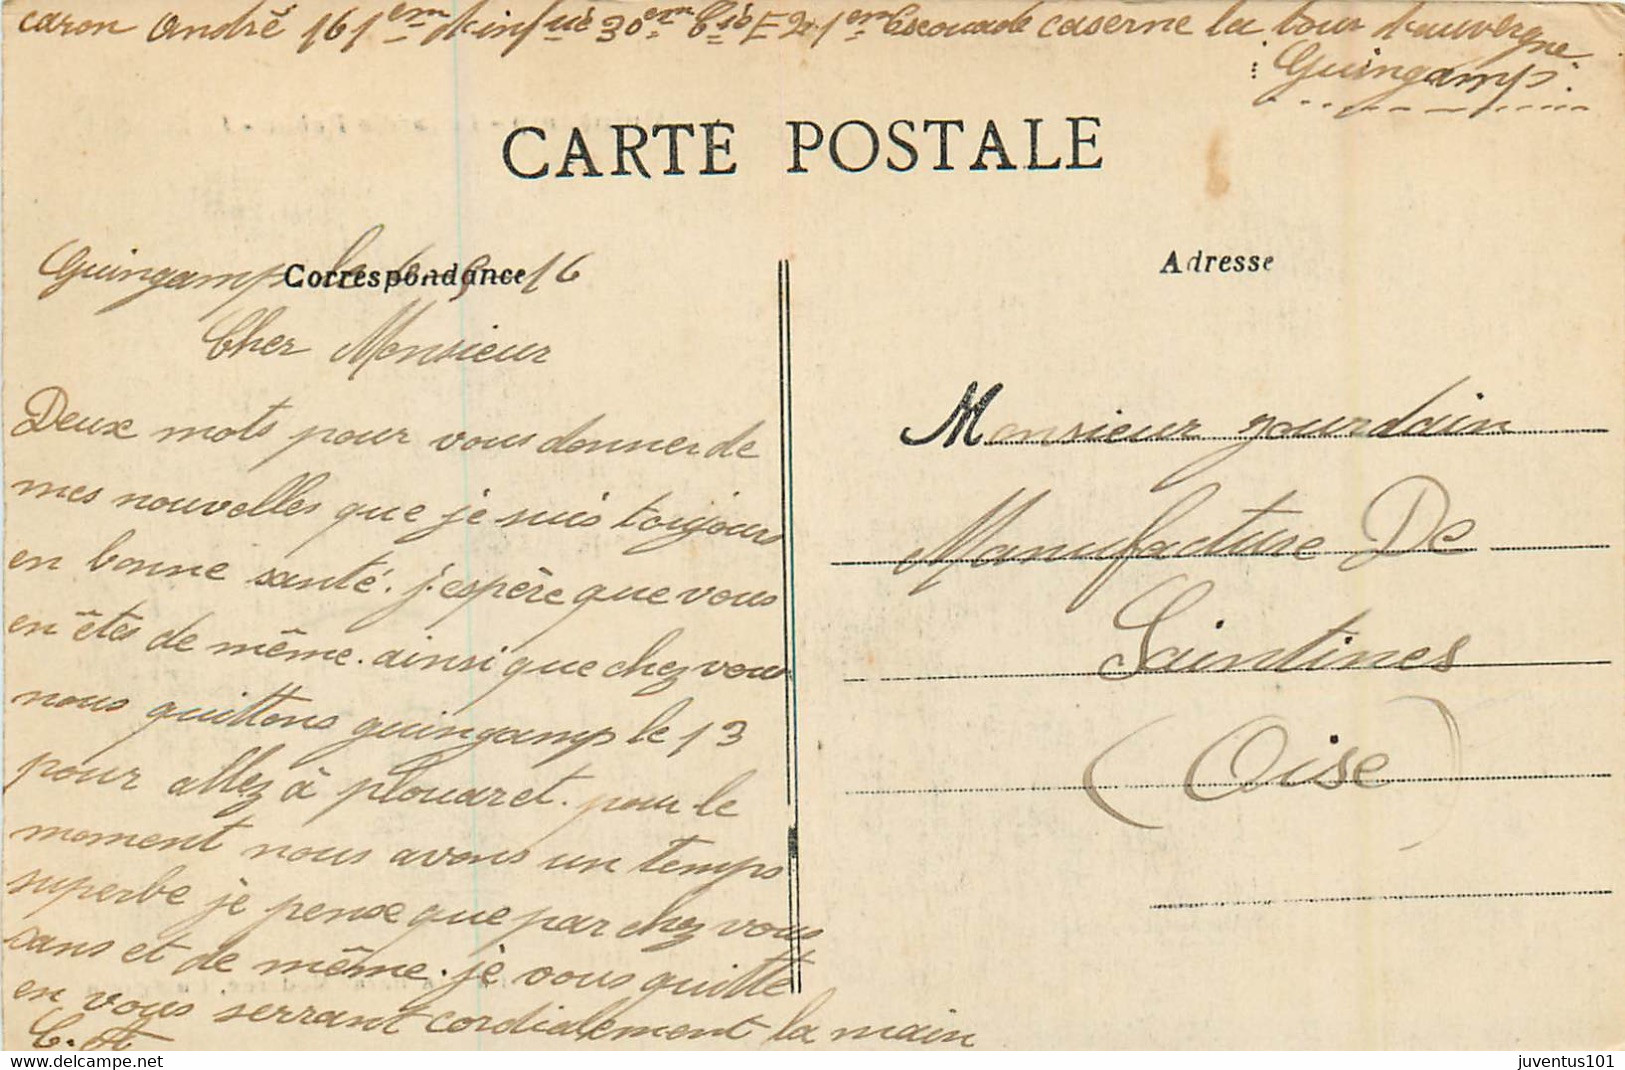 caron andré 161em d'infie 30em Cie 1em Escouade caserne la tour d'auvergne
Guingamps.
CARTE POSTALE
Correspondance
Adresse
Guingamp le 6 9 16
Cher Monsieur
Deux mots pour vous donner de
mes nouvelles que je suis toujours
en bonne santé. j'espère que vous
en êtes de même. ainsi que chez vous
nous quittons guingamp le 13
pour allez à plouaret. pour le
moment nous avons un temps
superbe je pense que par chez vous
sans et de même. je vous quitte
en vous serrant cordialement la main
C. A
Monsieur gourdain
Manufacture De
Saintines
(Oise)
juventus101